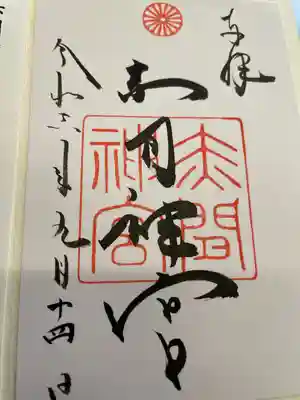 奉拝
赤間神宮
赤間
神宮
令和六年九月十四日